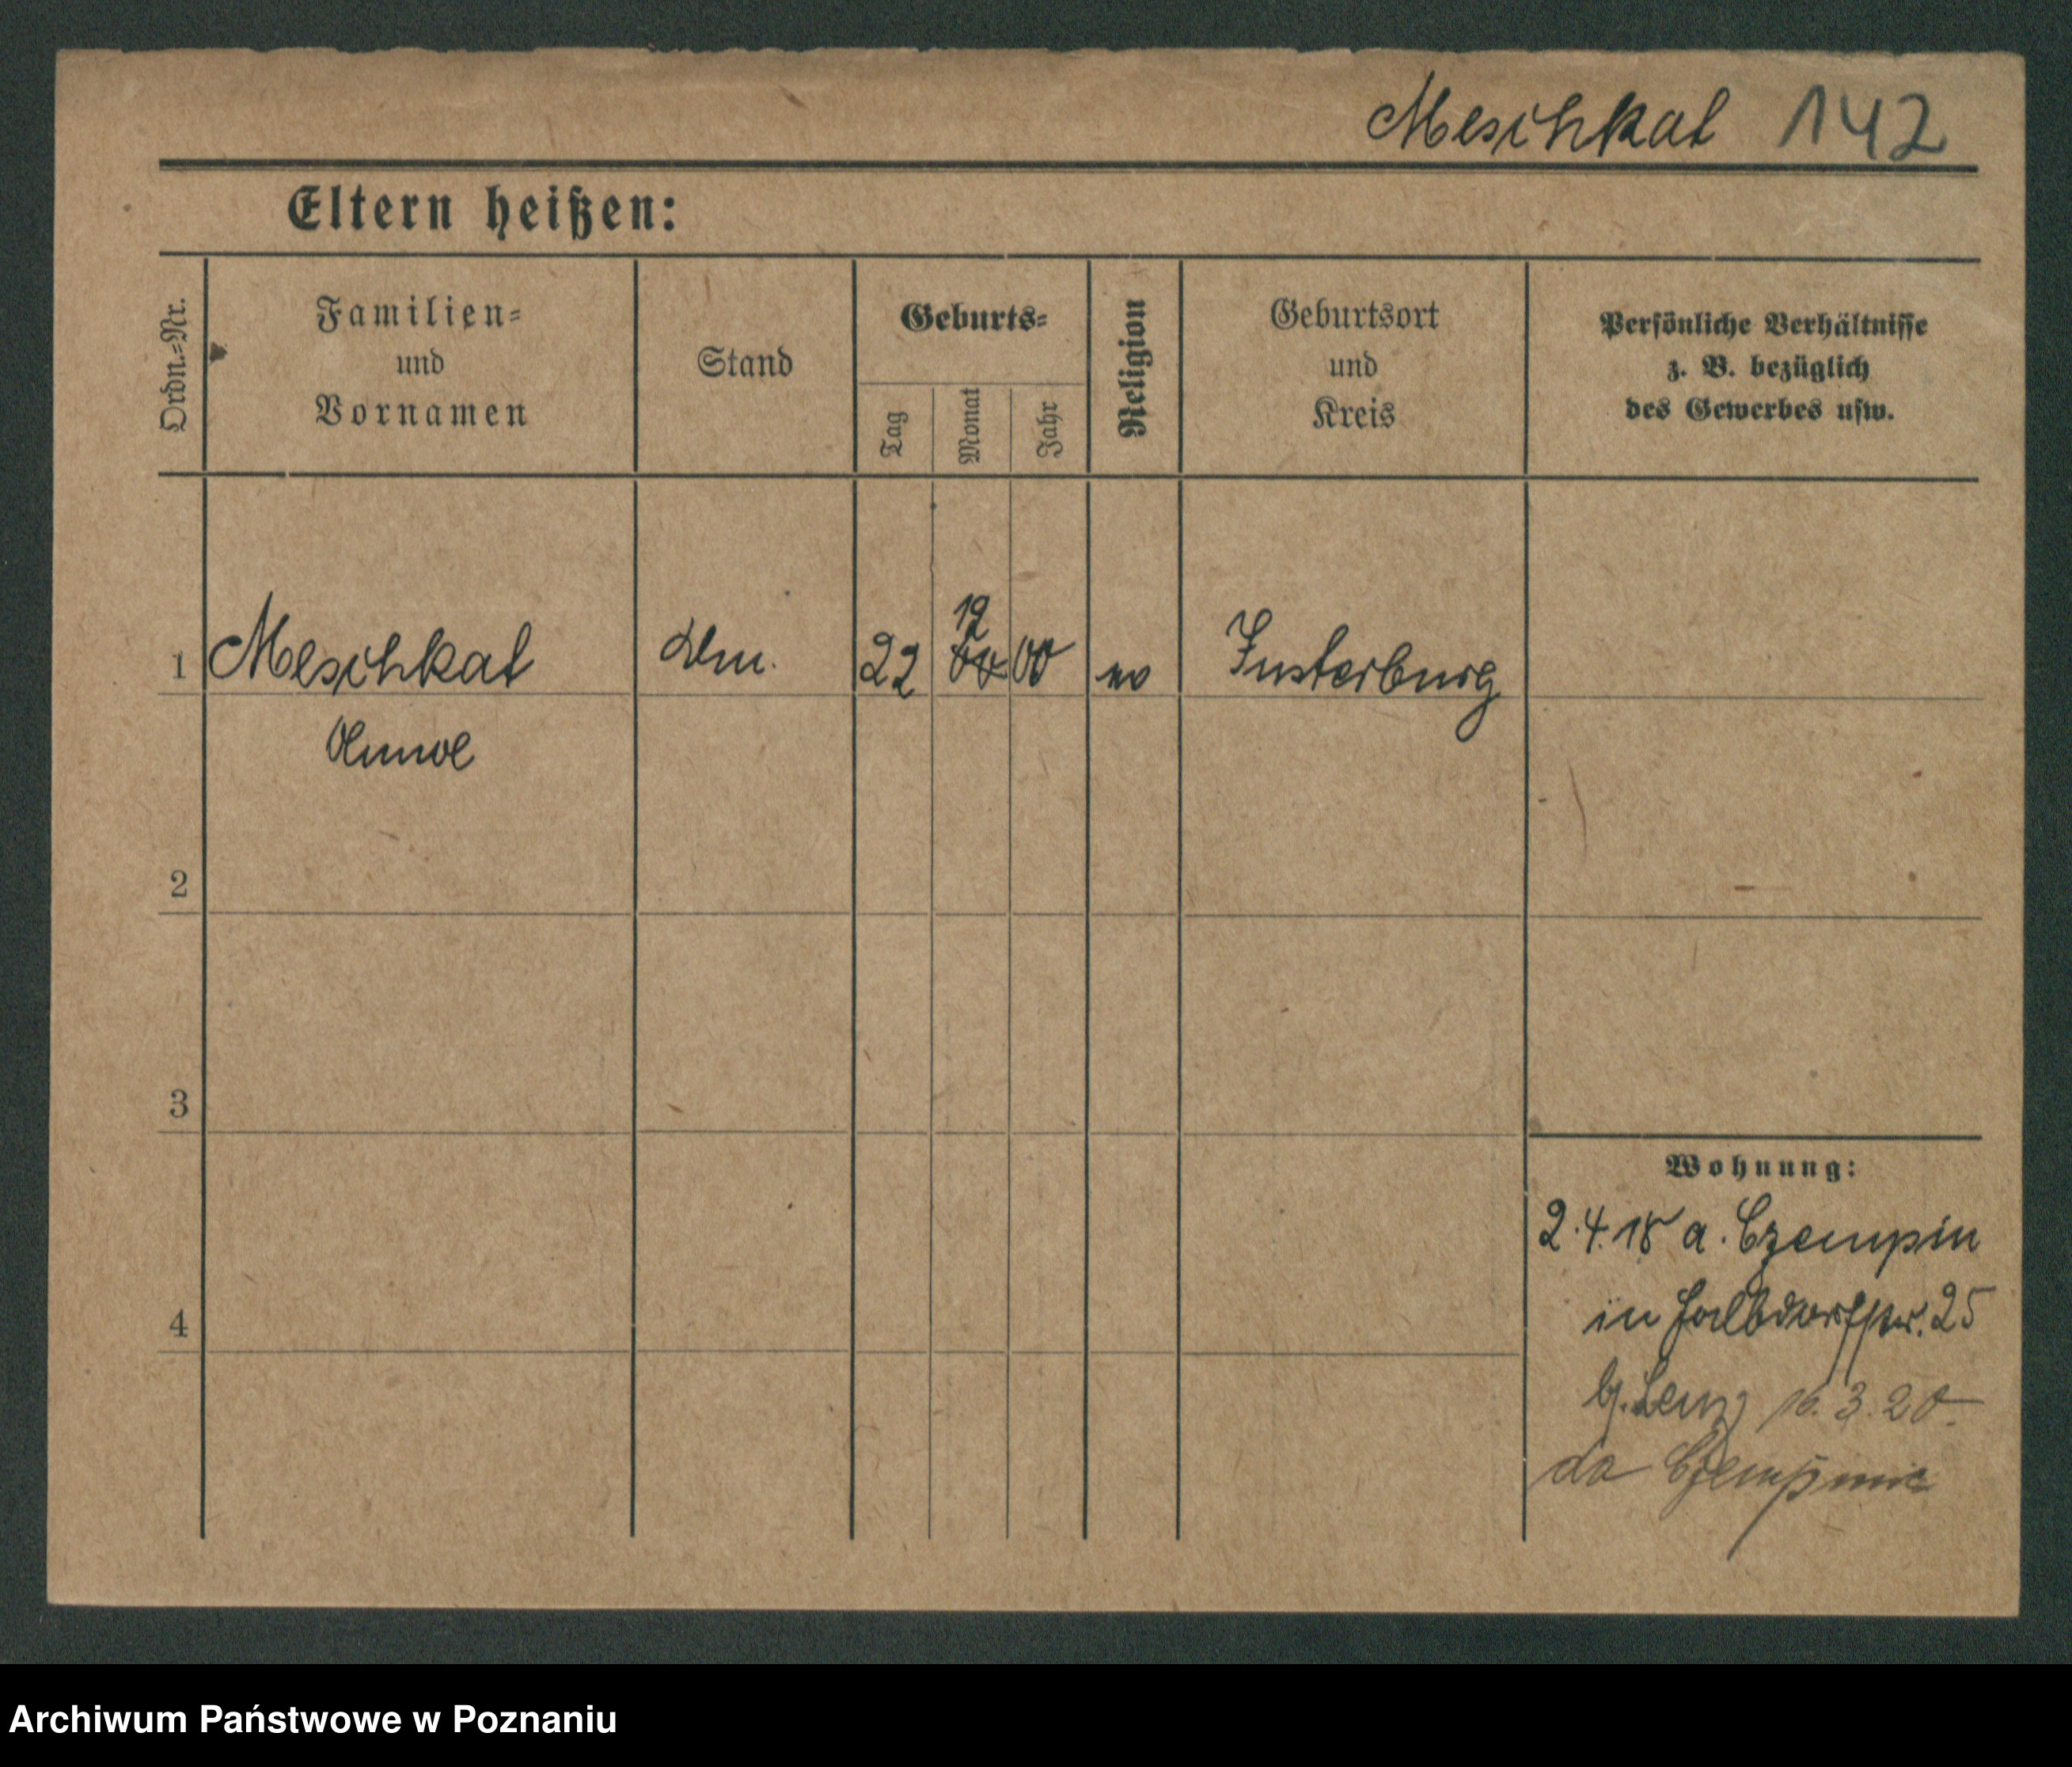 Meschkat 142
Eltern heißen:
Ordn.=Nr.
Familien=
und
Vornamen
Stand
Geburts=
Tag
Monat
Jahr
Religion
Geburtsort
und
Kreis
Persönliche Verhältnisse
z. B. bezüglich
des Gewerbes usw.
12
1 Meschkat 22 00 ev Insterburg
2
3
Wohnung:
2.4.18 a. Czempin
4
in 25
b. Lenz 16.3.20
do Czempinia
Archiwum Państwowe w Poznaniu